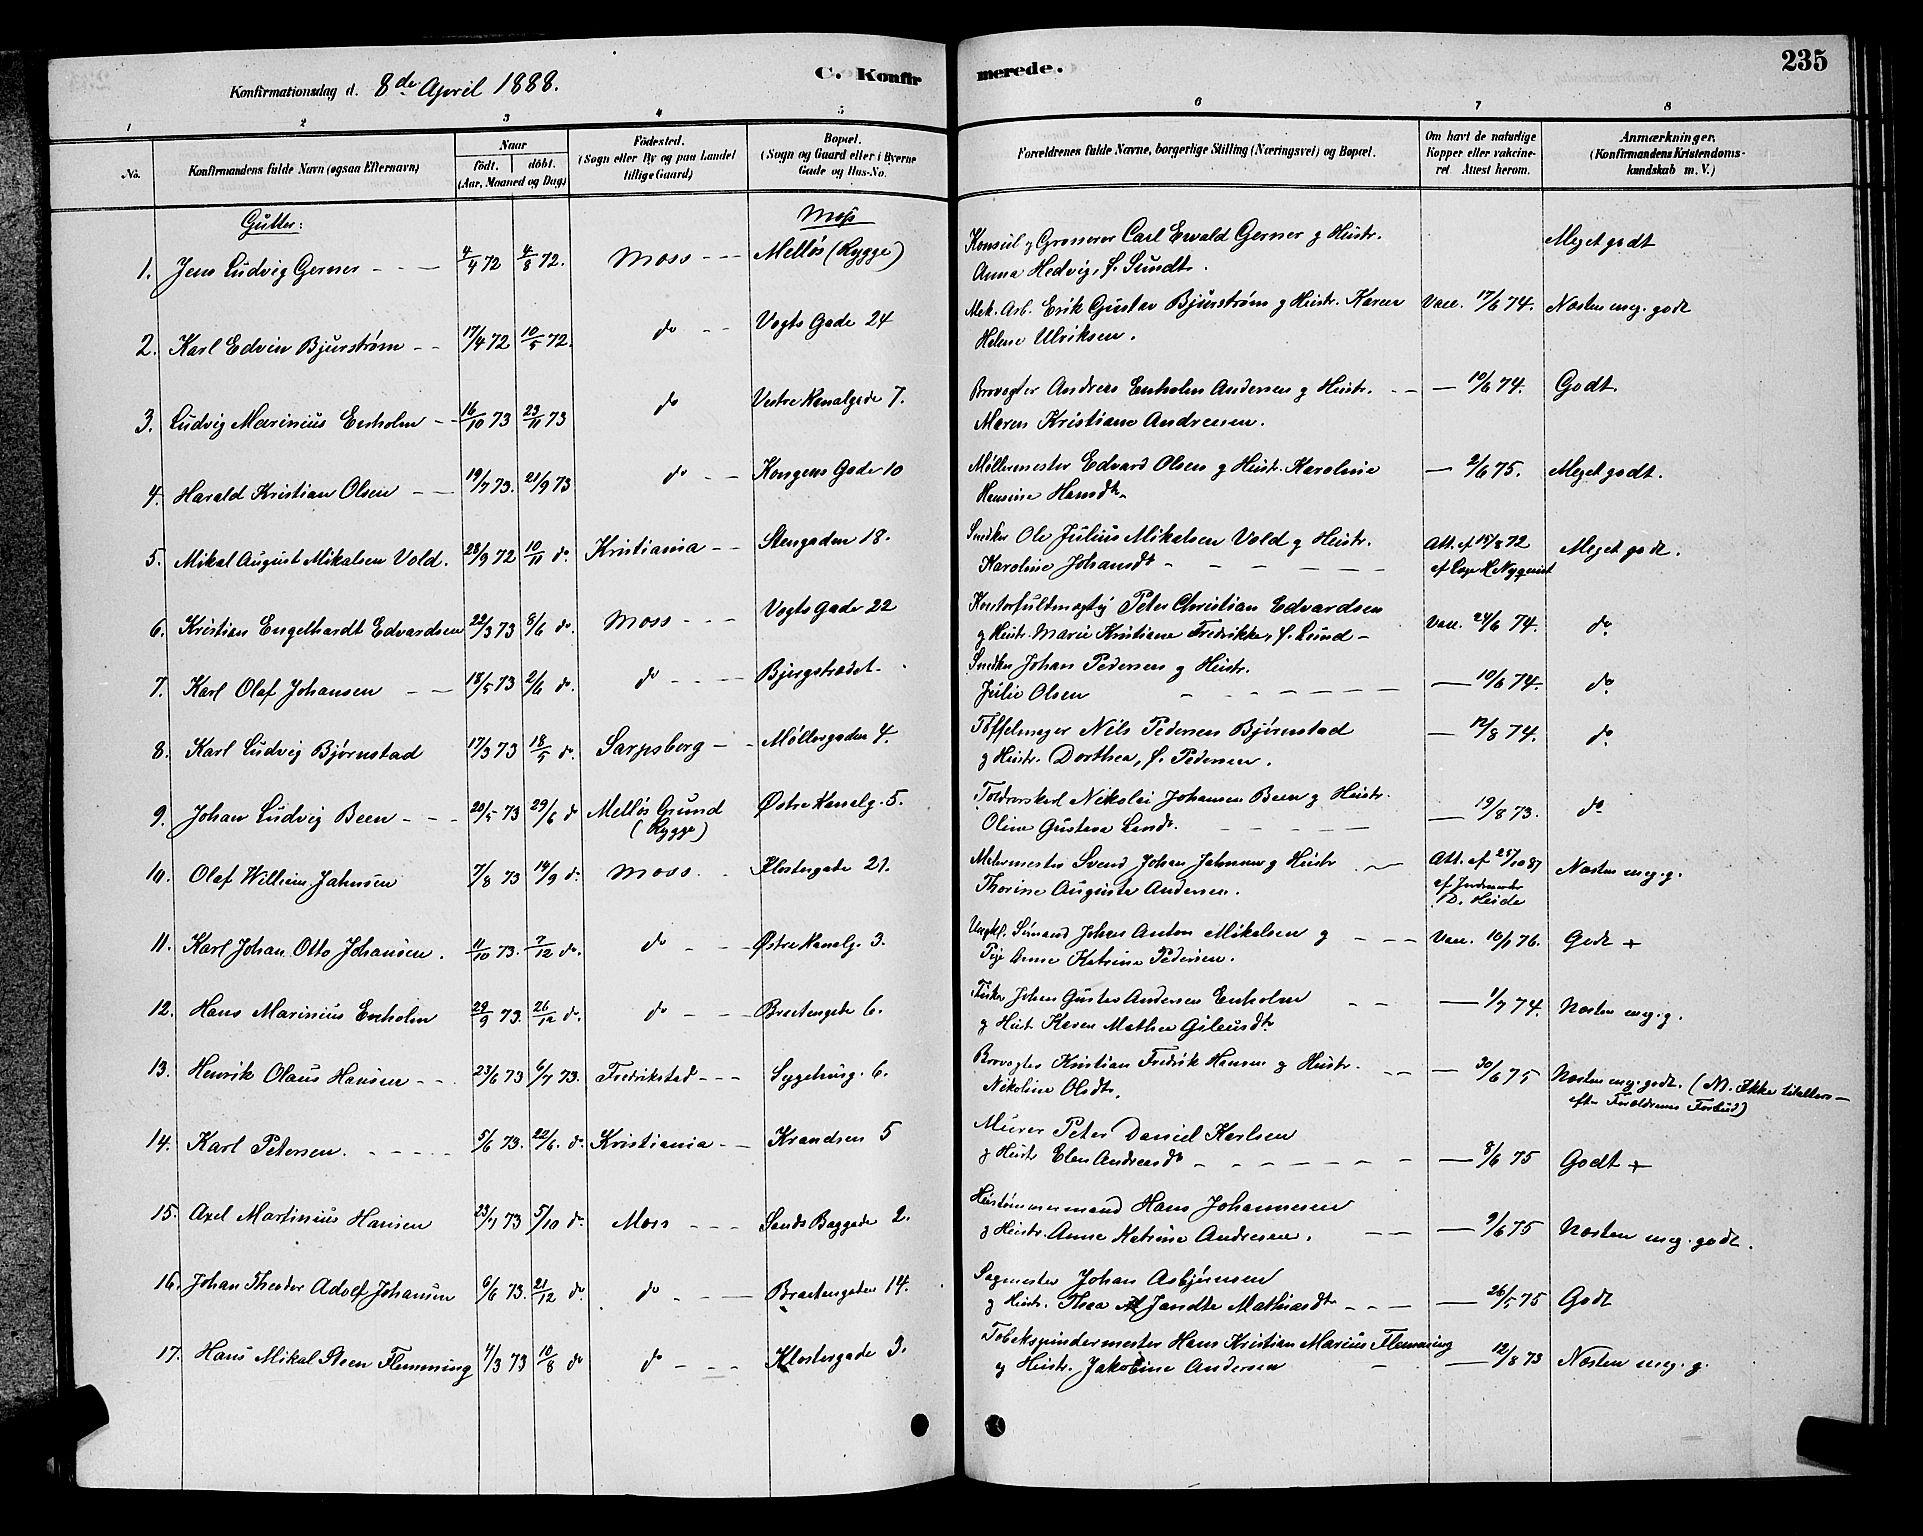 235
C. Konfirmerede.
Konfirmationsdag d. 8de April 1888.
1 2 3 4 5 6 7 8
No.
Konfirmandens fulde Navn (ogsaa Efternavn)
Naar
födt. döbt.
(Aar, Maaned og Dag)
Födested.
(Sogn eller By og paa Landet
tillige Gaard)
Bopæl.
(Sogn og Gaard eller i Byerne
Gade og Hus-No.
Forældrenes fulde Navne, borgerlige Stilling (Næringsvei) og Bopæl.
Om havt de naturlige
Kopper eller vakcine-
ret. Attest herom.
Anmærkninger,
(Konfirmandens Kristendoms-
kundskab m. V.)
Gutter: Moss
1. Jens Ludvig Gerner 4/4 72 4/8 72. Moss Mellös (Rygge) Konsul og Grosserer Carl Ewald Gerner og Hustr. Meget godt
Anna Hedvig, f. Sundt.
2. Karl Edvin Bjurstrøm 17/4 72 10/5 72. do Vogts Gade 24 Mek. Arb. Erik Gustav Bjurstrøm og Hustr. Karen Vacc. 17/6 74. Næsten meg. godt
Helene Ulriksen.
3. Ludvig Marinius Enholm 16/10 73 23/11 73 do Vestre Kanalgade 7. Brovogter Andreas Enholm Andersen og Hustr. — 10/6 74. Godt
Maren Kristiane Andreasen.
4. Harald Kristian Olsen 19/7 73. 21/9 73 do Kongens Gade 10 Møllermester Edvard Olsen og Hustr. Karoline — 2/6 75. Meget godt.
Hansine Hansdt.
5. Mikal August Mikalsen Vold. 28/9 72 10/11 do. Kristiania Stengaden 18. Snedker Ole Julius Mikelsen Vold og Hustr. Att. af 15/8 72 Meget godt.
Karoline Johansdt. af Læge Nyquist
6. Kristian Engelhardt Edvardsen 22/3 73 8/6 do. Moss Vogts Gade 22 Kontorfuldmægtig Peter Christian Edvardsen Vacc. 24/6 74. do.
og Hustr. Marie Kristiane Fredrikke, f. Lund
7. Karl Olaf Johansen 18/5 73 2/6 do. do Bjergstrædet. Snedker Johan Pedersen og Hustr. — 10/6 74. do.
Julie Olsen
8. Karl Ludvig Bjørnstad 17/3 73 18/5 do. Sarpsborg Møllergaden 4. Tøffelmager Nils Pedersen Bjørnstad — 12/8 74. do.
og Hustr. Dorthea, f. Pedersen.
9. Johan Ludvig Been 20/5 73 29/6 do Mellös Grund Østre Kanalg. 5. Toldrorskarl Nikolai Johansen Been og Hustr. — 19/8 73. do
(Rygge) Oline Gustava
10. Olaf Wilhelm Jahnsen 7/8 73 14/9 do. Moss. Klostergade 21. Malermester Svend Johan Jahnsen og Hustr Att. af 25/10 87 Næsten meg. g.
Thorine Augusta Andersen. af Jordmoder D. Heide
11. Karl Johan Otto Johansen. 11/10 73. 7/12 do. do Østre Kanalg. 3. Ungkl. Sømand Johan Anton Mikalsen og Vacc. 10/7 76. Godt +
Pige Anne Katrine Pedersen.
12. Hans Marinius Enholm 29/9 73. 26/12 do. do Bråtengata 6. Fisker Johan Gustav Andersen Enholm — 1/7 74. Næsten meg. g.
og Hustr. Karen Mathea
13. Henrik Olaus Hansen 23/6 73 6/7 73. Fredrikstad Sygehusg. 6. Brovogter Kristian Fredrik Hansen og Hustr. — 30/6 75 Næsten meg. godt. (NB. Ikke
Nikoline Olsdt. efter Forældrenes Forbud)
14. Karl Petersen. 5/6 73. 22/6. do. Kristiania Krandsen 5 Murer Peter Daniel Karlsen — 8/6 75 Godt +
og Hustr Elen Andreasdt
15. Axel Martinius Hansen 23/7 73 5/10 do. Moss Sands Baggade 2. Hustømmermand Hans Johannesen — 9/6 75 Næsten meg. godt.
og Hustr. Anne Katrine Andresen.
16. Johan Theodor Adolf Johansen 6/6 73. 21/12 do. do Braatengaden 14. Sagmester Johan Asbjørnsen — 26/5 75 Godt
og Hustr. Thea Jandte Mathiasdt
17. Hans Mikal Steen Flemming 4/3 73 10/8 do do Klostergade 3. Tobakspindermester Hans Kristian Marius Flemming — 12/8 73 Næsten meg. g.
og Hustr. Jakobine Andersen